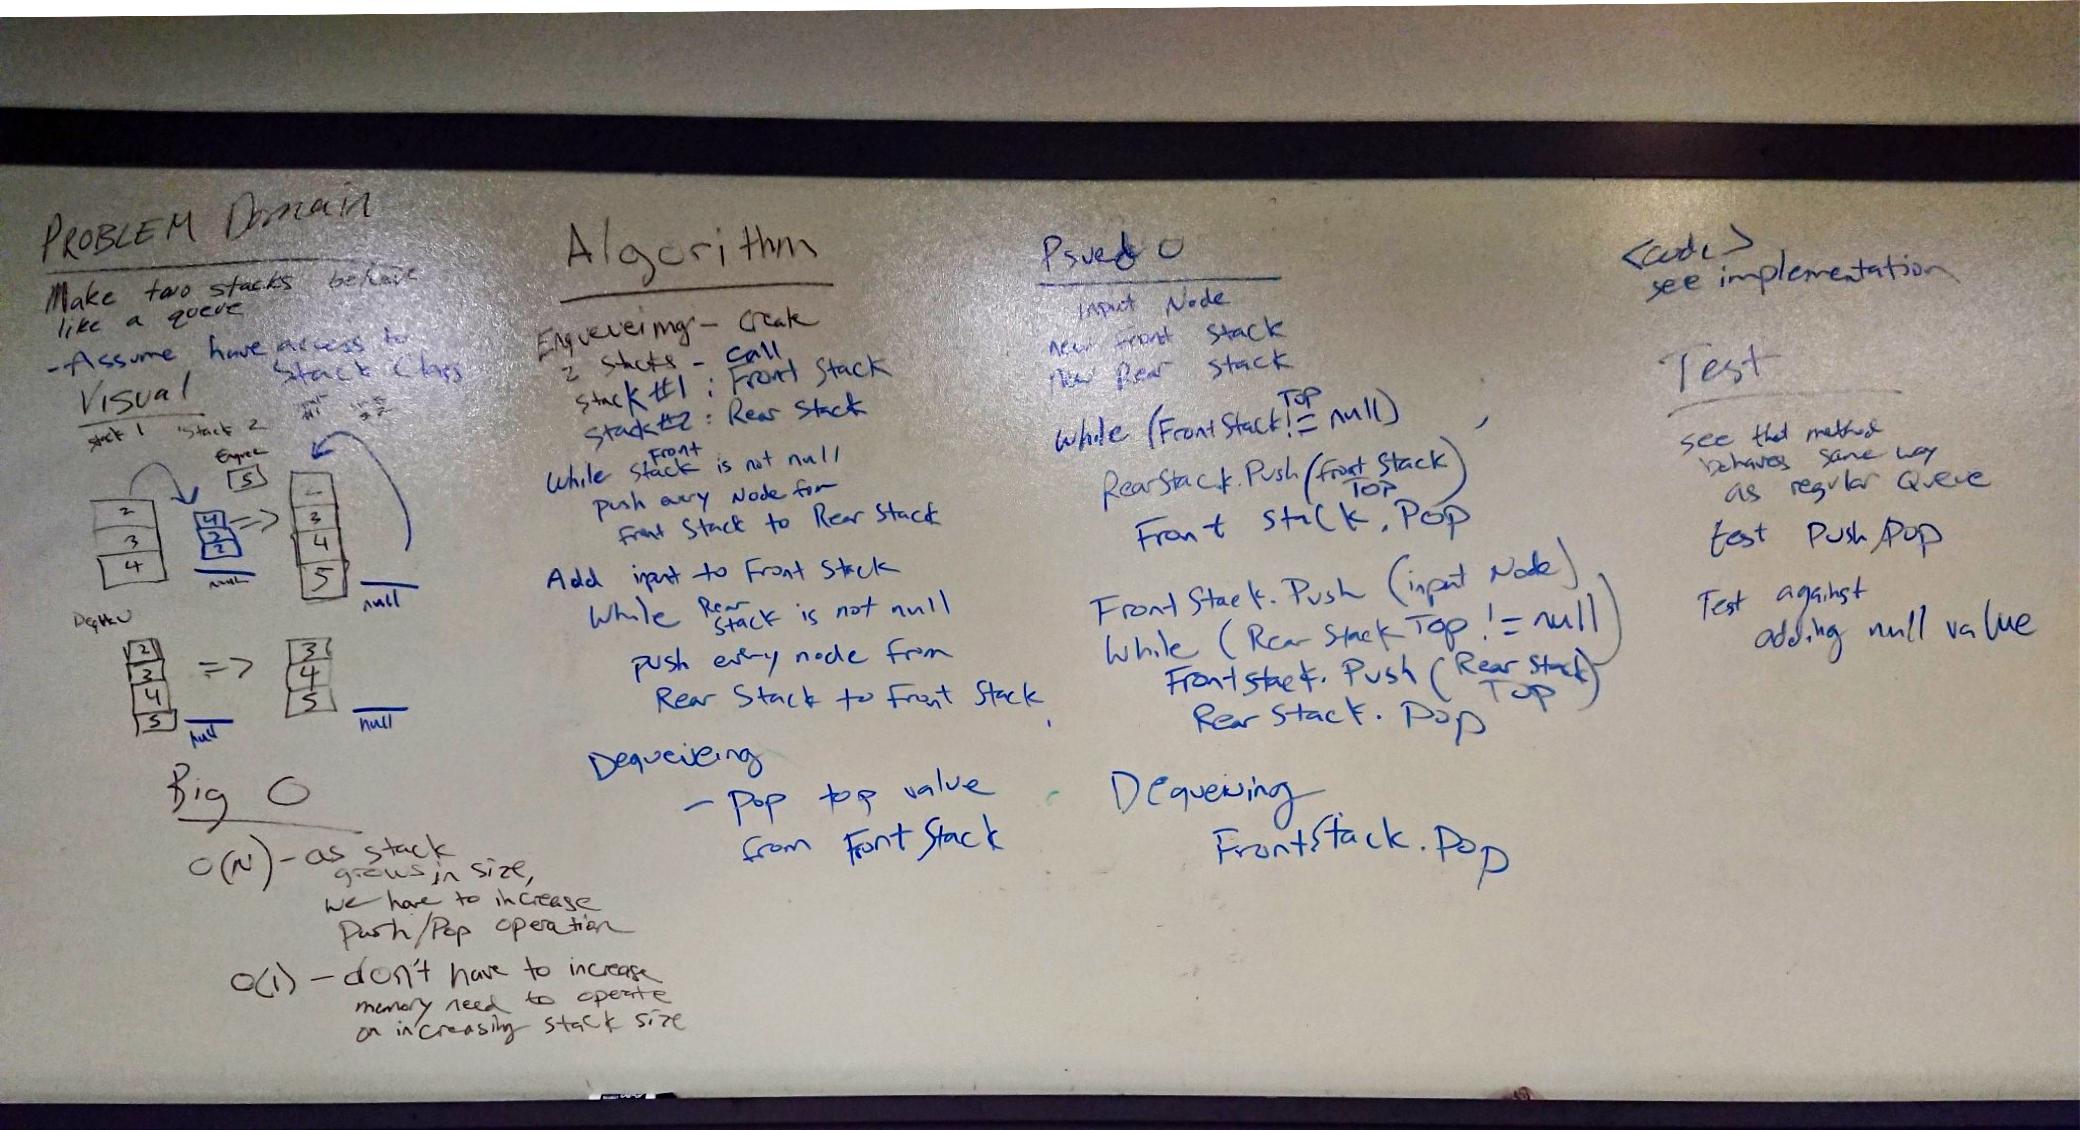 PROBLEM Domain
Make two stacks behave
like a queue
- Assume have access to
Stack Class
Visual
stack 1 stack 2
Enqueue
5
2
3
4
4
3
2
=>
null
2
3
4
5
null
2
3
4
5
=>
null
3
4
5
null
Big O
O(N) - as stack
grows in size,
we have to increase
Push/Pop operation
O(1) - don't have to increase
memory need to operate
on increasing stack size
Algorithm
Enqueueing - Create
2 stacks - call
stack #1 : Front Stack
stack #2 : Rear Stack
While Front stack is not null
push every Node from
Front Stack to Rear Stack
Add input to Front Stack
While Rear stack is not null
push every node from
Rear Stack to Front Stack
Dequeueing
- Pop top value
from Front Stack
Psuedo
input Node
new Front Stack
new Rear Stack
while (FrontStack TOP != null)
RearStack.Push (Front Stack TOP)
Front stack.Pop
FrontStack.Push (input Node)
While (Rear Stack Top != null)
Frontstack.Push (Rear Stack Top)
Rear Stack.Pop
Dequeueing
FrontStack.Pop
<code>
see implementation
Test
see that method
behaves same way
as regular Queue
test Push/Pop
Test against
adding null value